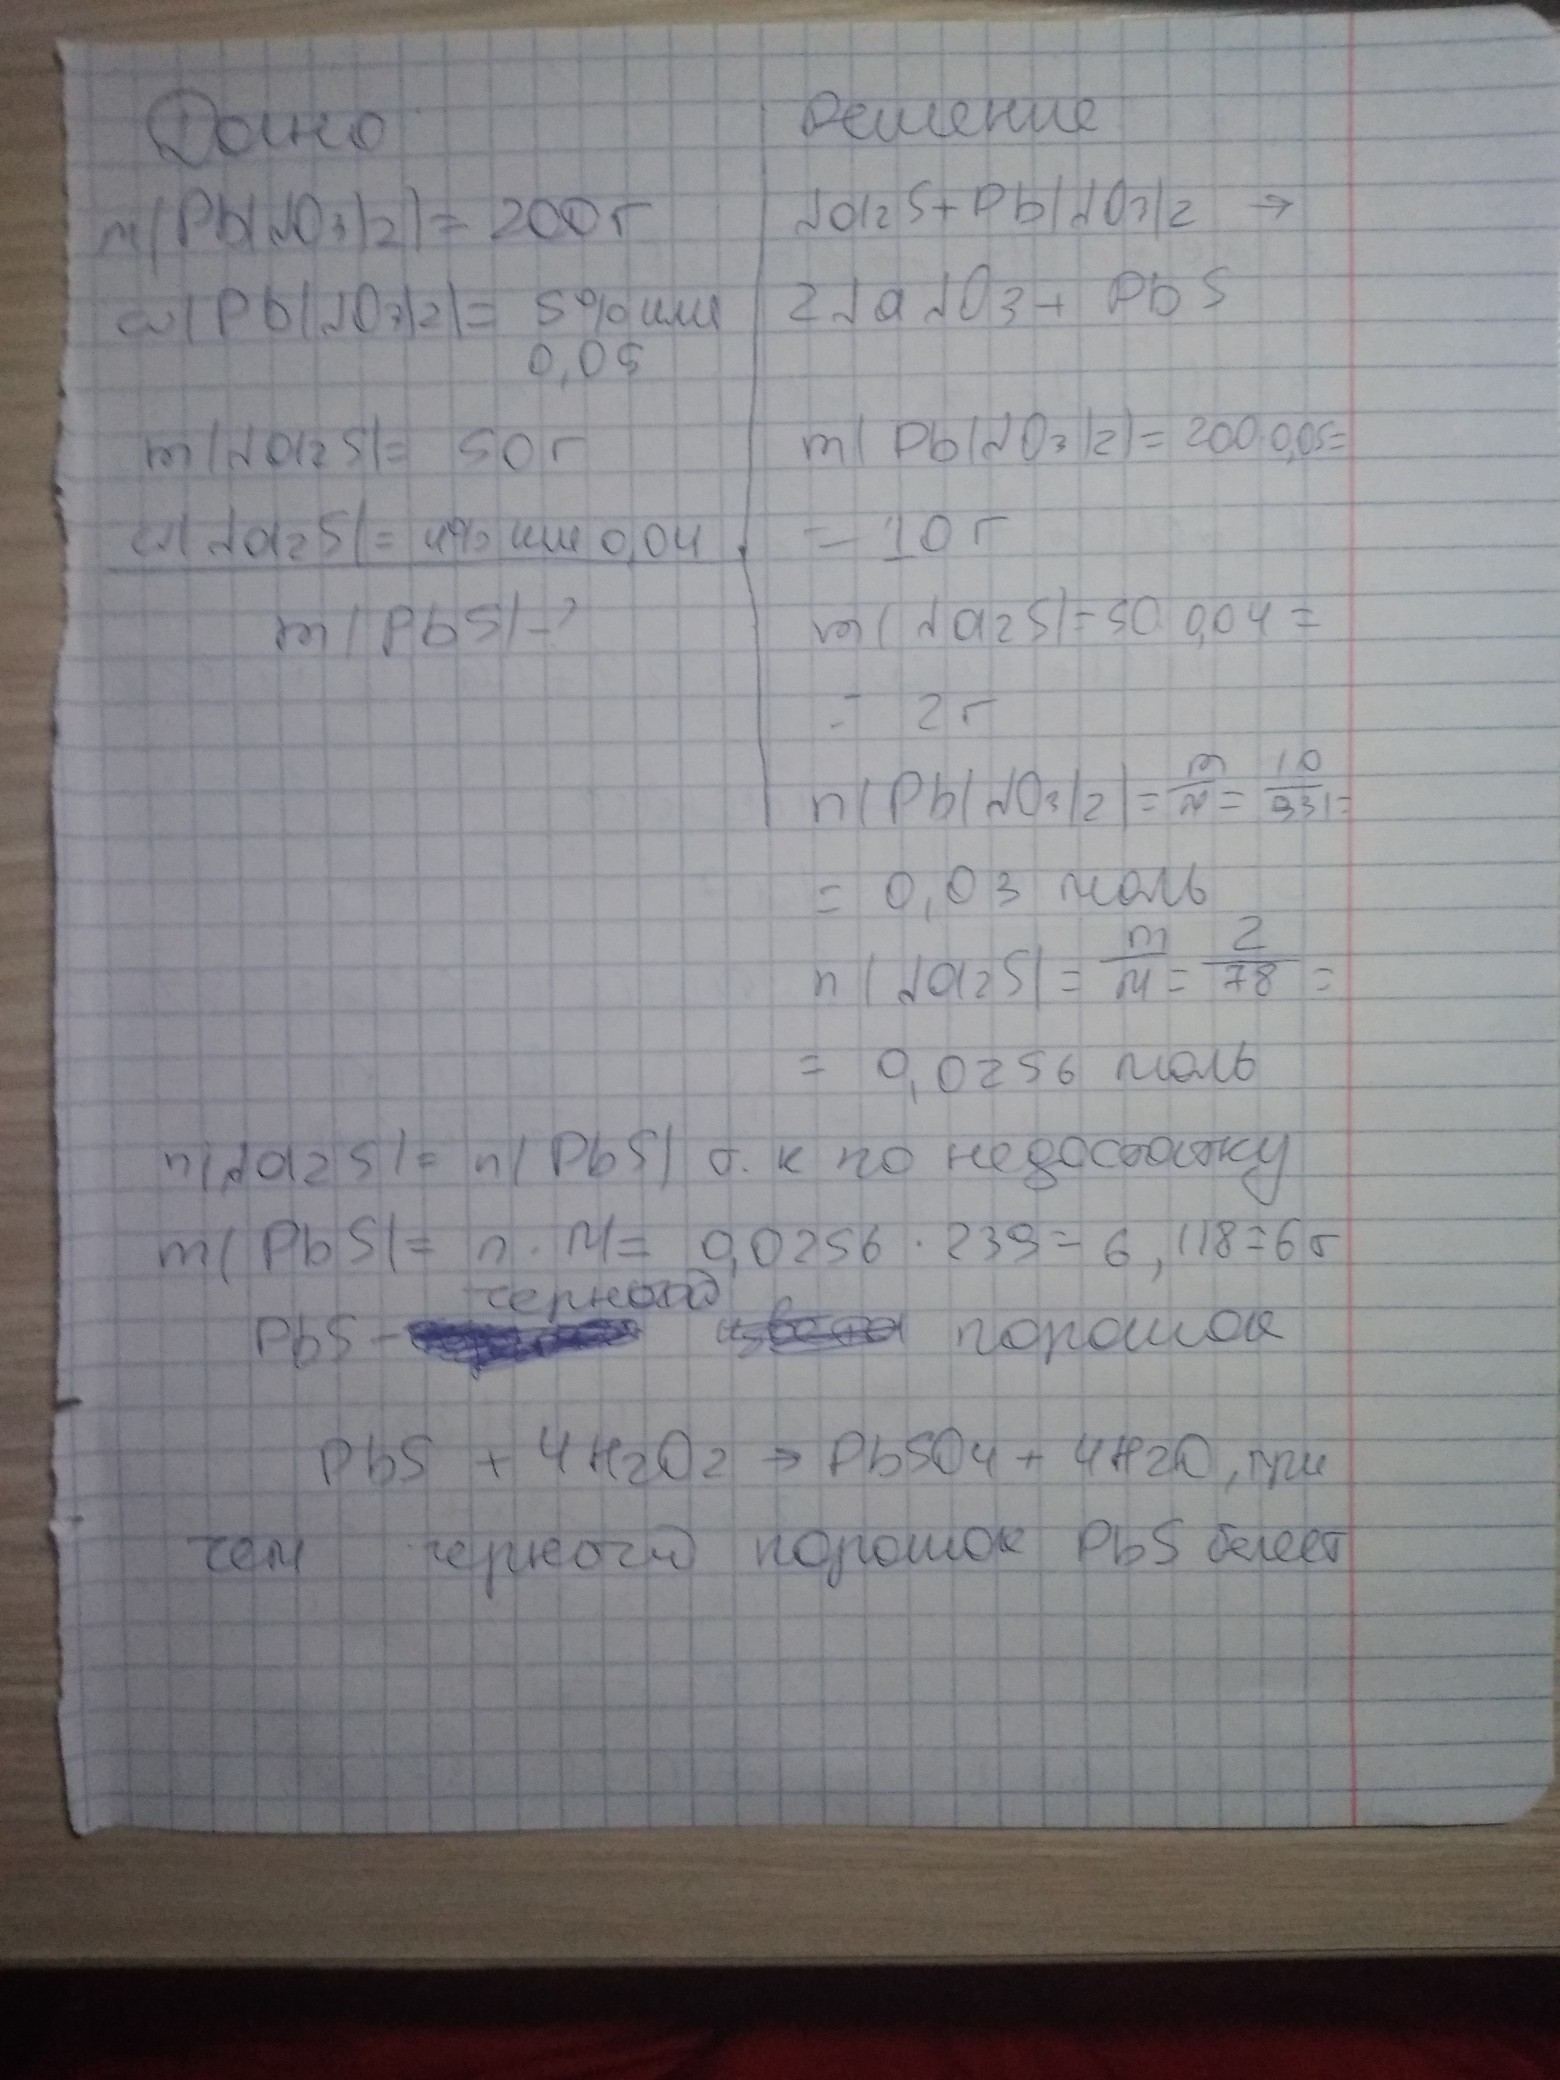 Дано
m(Pb(NO3)2)= 200г
ω(Pb(NO3)2)= 5% или
0,05
m(Na2S)= 50г
ω(Na2S)= 4% или 0,04
m(PbS)-?
Решение
Na2S+Pb(NO3)2 →
2NaNO3+ PbS
m(Pb(NO3)2)= 200·0,05=
= 10г
m(Na2S)=50·0,04=
= 2г
n(Pb(NO3)2)= m/M = 10/331=
= 0,03 моль
n(Na2S)= m/M = 2/78 =
= 0,0256 моль
n(Na2S)= n(PbS) т. к по недостатку
m(PbS)= n·M= 0,0256·239=6,118=6г
черный
PbS- порошок
PbS + 4H2O2 → PbSO4 + 4H2O, при
чем черный порошок PbS белеет